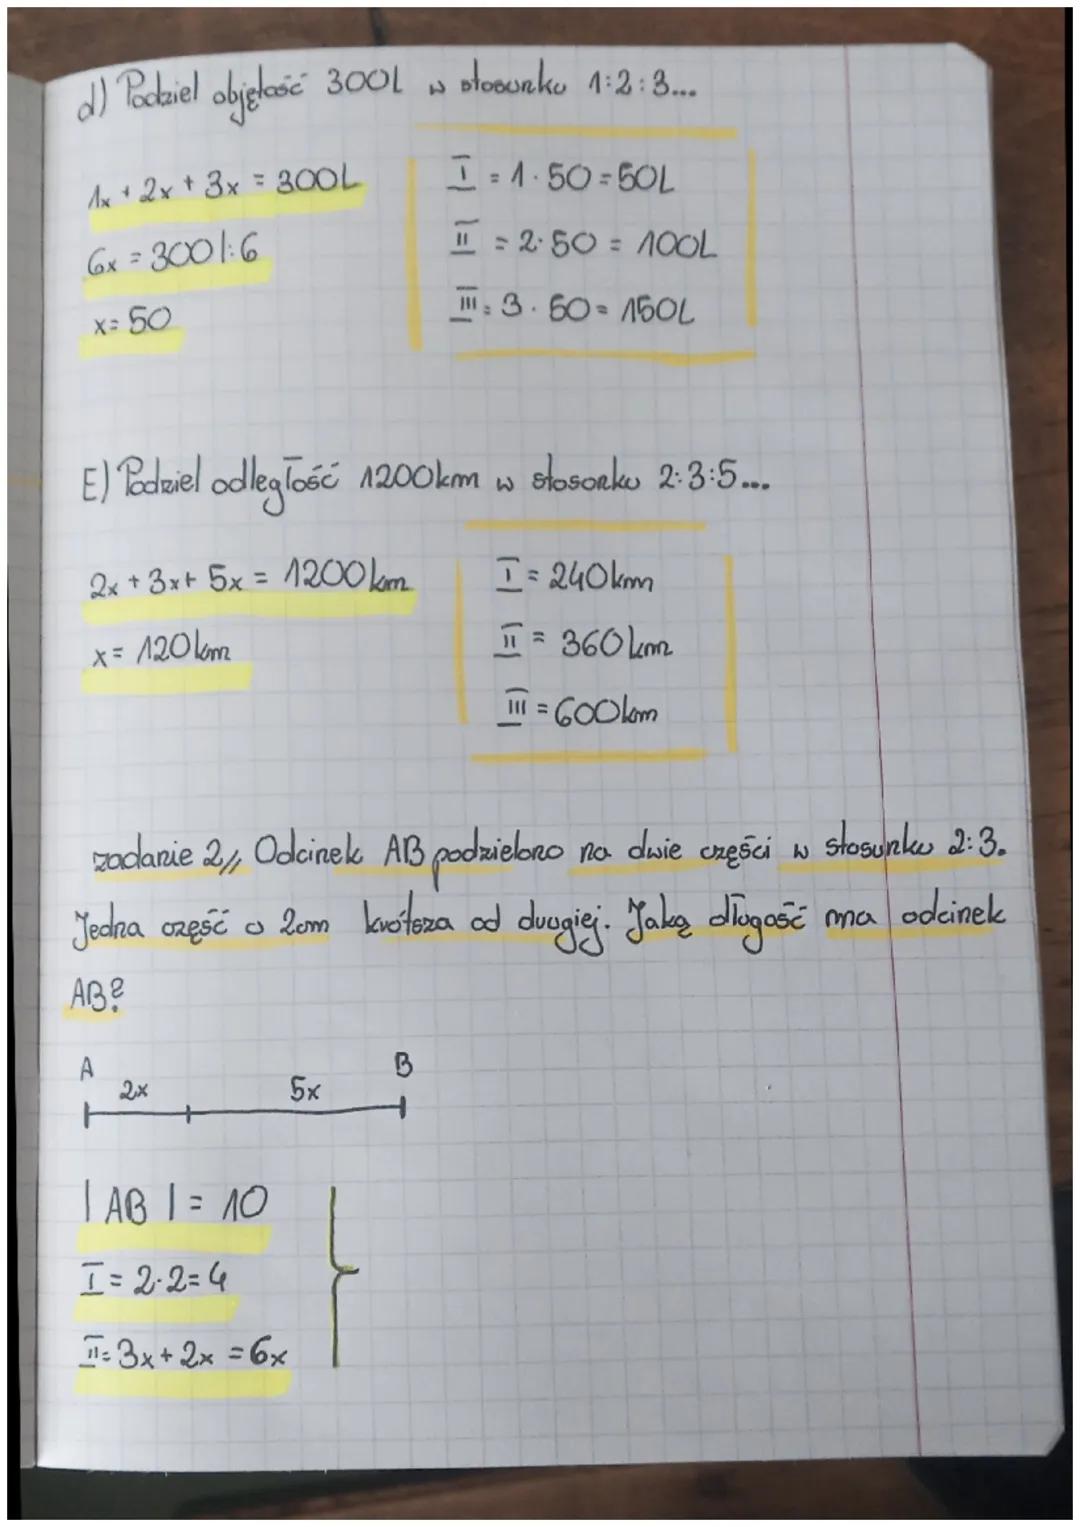 d) Podziel objętość 300L w stosunku 1:2:3...
1x + 2x + 3x = 300L
6x = 300 |:6
x = 50
I = 1 · 50 = 50L
II = 2 · 50 = 100L
III = 3 · 50 = 150L
E) Podziel odległość 1200km w stosonku 2:3:5...
2x + 3x + 5x = 1200km
x = 120km
I = 240km
II = 360km
III = 600km
zadanie 2,, Odcinek AB podzielono na dwie części w stosunku 2:3.
Jedna część o 2cm krótsza od drugiej. Jaką długość ma odcinek
AB?
A B
2x 5x
|AB| = 10
I = 2·2 = 4
II = 3x + 2x = 6x